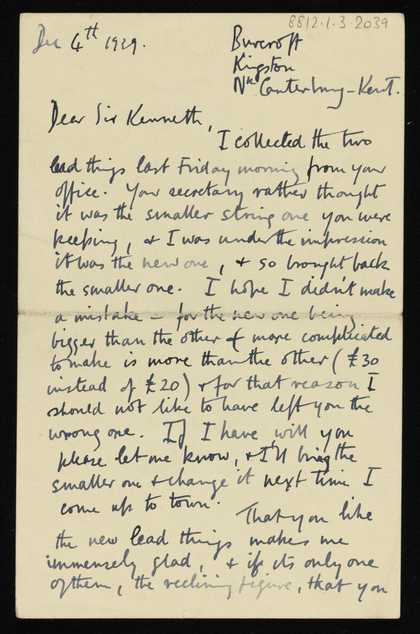 8812.1.3.2039
Dec 4th 1939.
Burcroft
Kingston
Nr Canterbury - Kent.
Dear Sir Kenneth,
I collected the two
lead things last Friday morning from your
office. Your secretary rather thought
it was the smaller string one you were
keeping, & I was under the impression
it was the new one, & so brought back
the smaller one. I hope I didn't make
a mistake – for the new one being
bigger than the other & more complicated
to make is more than the other (£30
instead of £20) & for that reason I
should not like to have left you the
wrong one. If I have will you
please let me know, & I'll bring the
smaller one & change it next time I
come up to town.
That you like
the new lead things makes me
immensely glad, & if its only one
of them, the reclining figure, that you